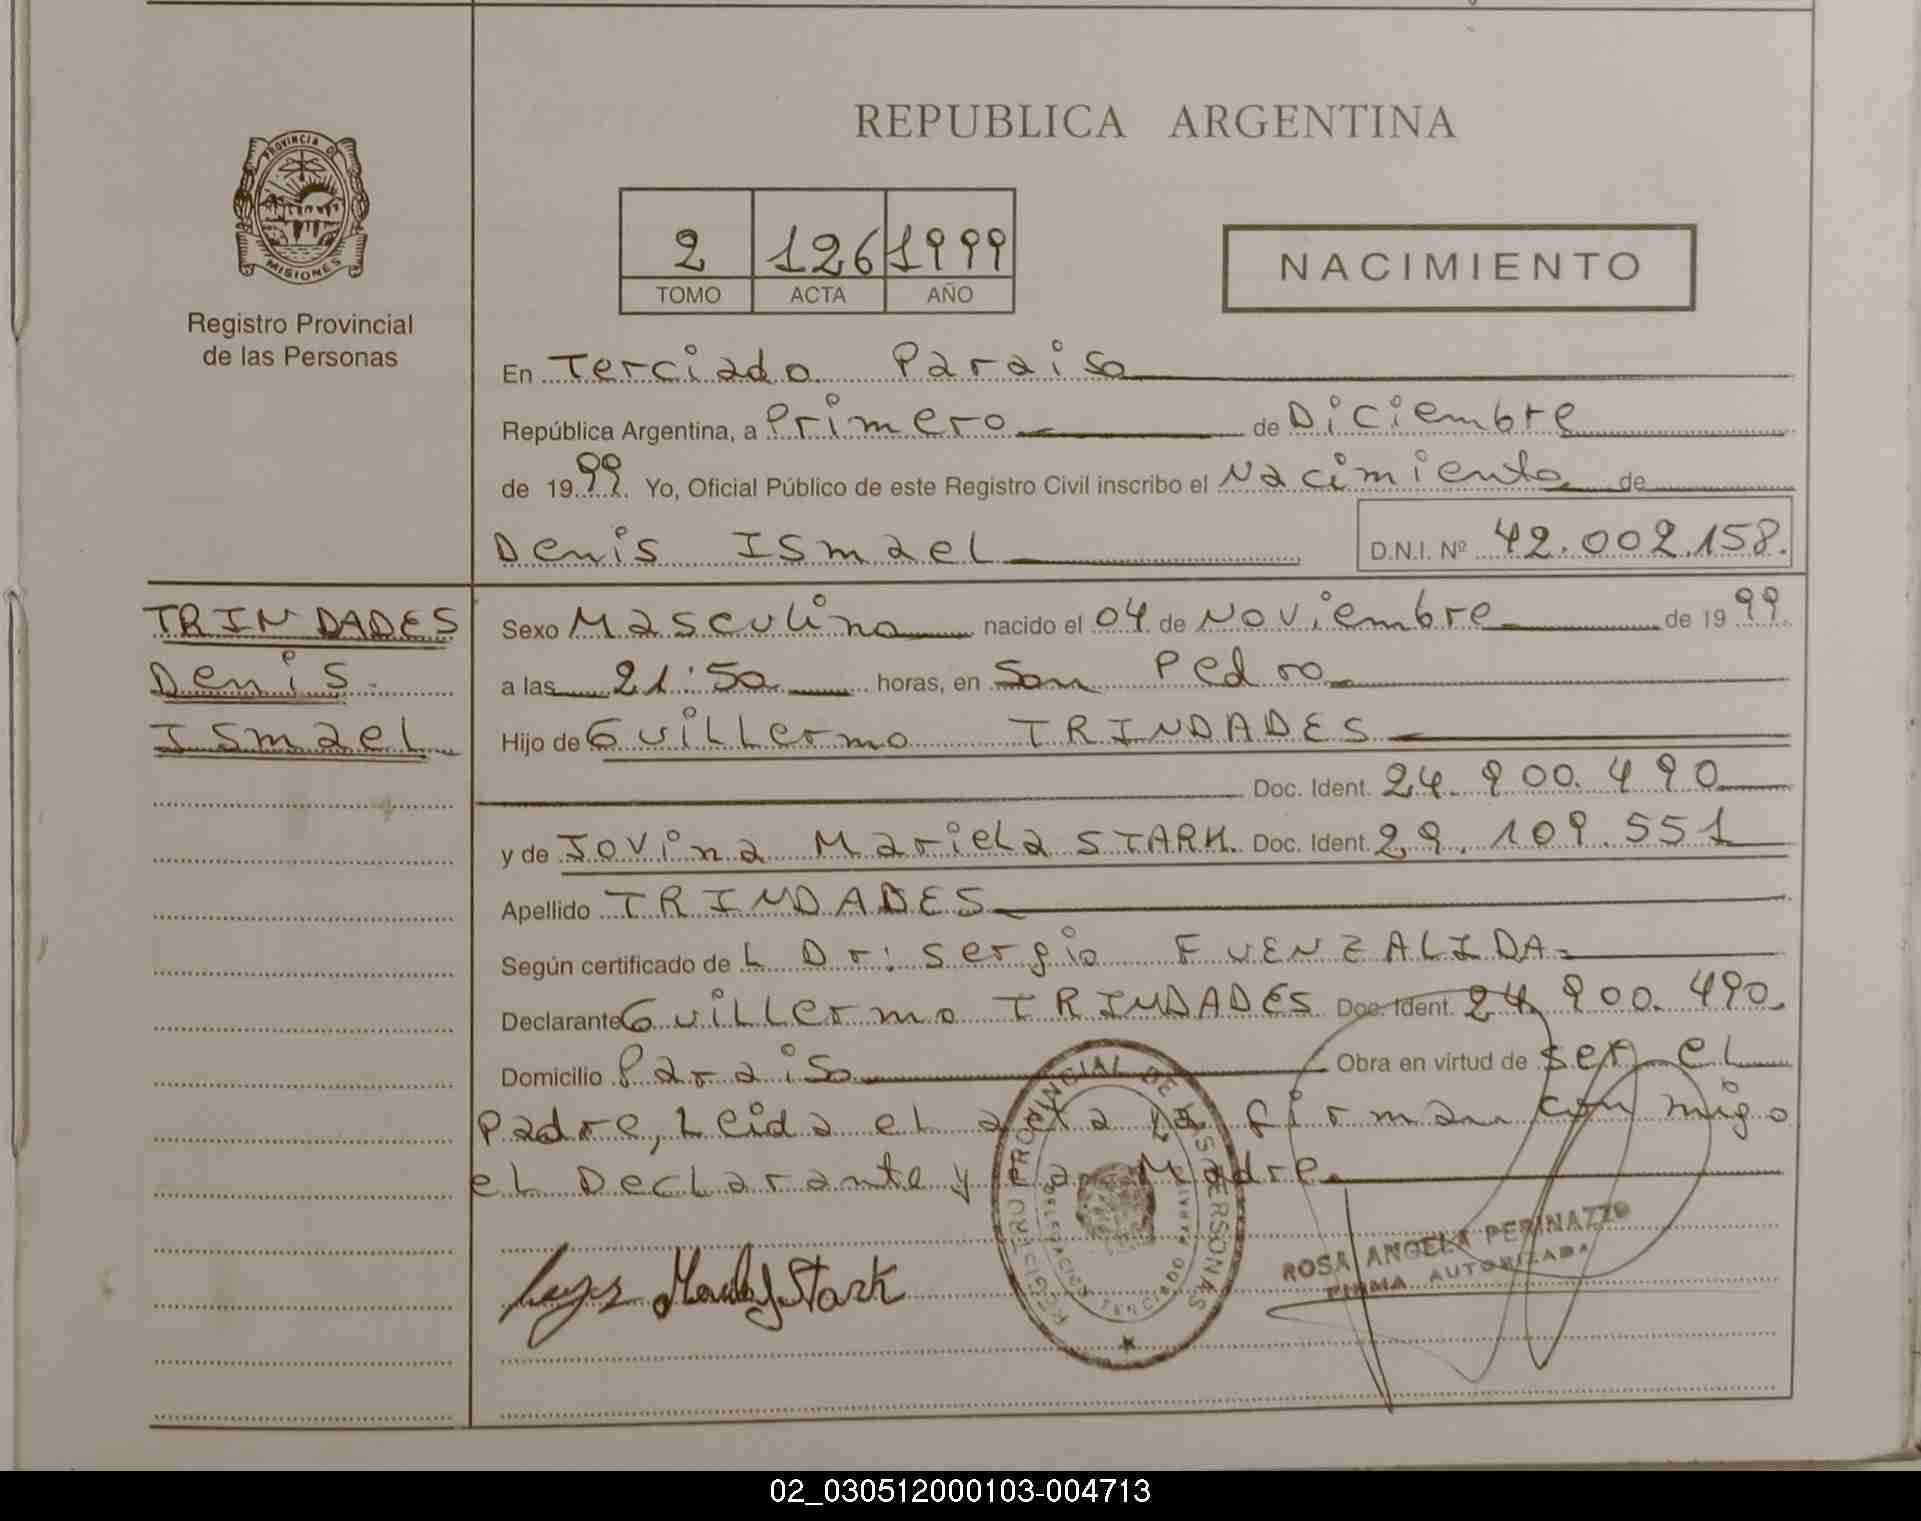 REPUBLICA ARGENTINA
PROVINCIA DE
MISIONES
Registro Provincial
de las Personas
2 126 1999
TOMO ACTA AÑO
NACIMIENTO
En Terciado Paraiso
República Argentina, a Primero de Diciembre
de 1999. Yo, Oficial Público de este Registro Civil inscribo el Nacimiento de
Denis Ismael D.N.I. Nº 42.002.158.
TRINDADES
Denis
Ismael
Sexo Masculino nacido el 04 de Noviembre de 1999.
a las 21:50 horas, en San Pedro
Hijo de Guillermo TRINDADES
Doc. Ident. 24.900.490
y de Jovina Mariela STARK. Doc. Ident. 29.109.551
Apellido TRINDADES
Según certificado de L Dr: Sergio FUENZALIDA
Declarante Guillermo TRINDADES Doc. Ident. 24.900.490
Domicilio Paraiso Obra en virtud de ser el
Padre, Leida el acta La firman con migo
el Declarante y La Madre
REGISTRO PROVINCIAL DE LAS PERSONAS
DELEGACION TERCIADO PARAISO
Stark
ROSA ANGELA PERINAZZO
FIRMA AUTORIZADA
02_030512000103-004713